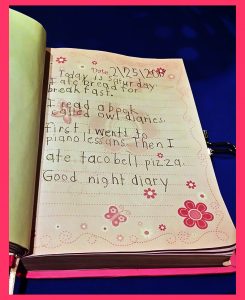 Date 2/25/2017
Today is saturday
I ate bread for
breakfast.
I read a book
called owl diaries.
first i went to
piano lessons. Then I
ate taco bell pizza.
Good night diary